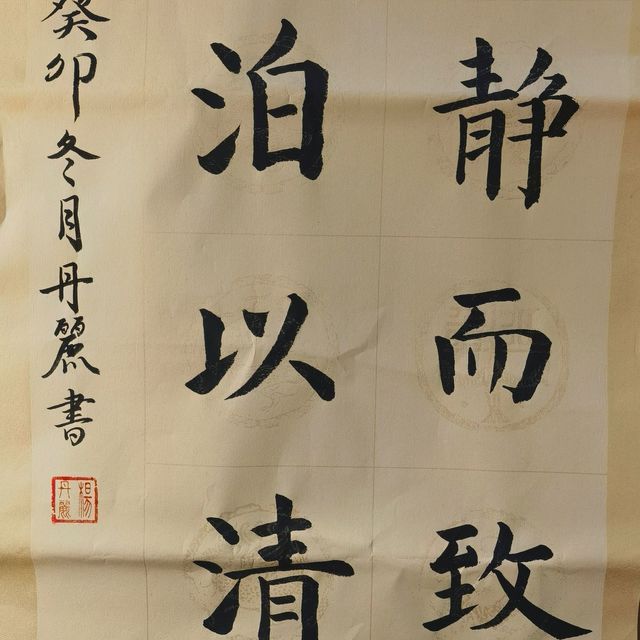 静而致
泊以清
癸卯冬月丹麗書